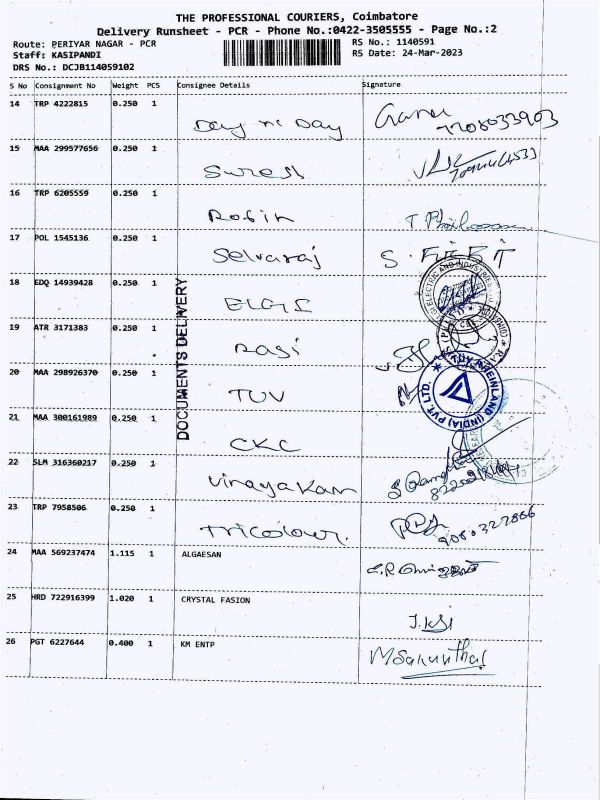 THE PROFESSIONAL COURIERS, Coimbatore
Delivery Runsheet - PCR - Phone No.:0422-3505555 - Page No.:2
Route: PERIYAR NAGAR - PCR
RS No.: 1140591
Staff: KASIPANDI
RS Date: 24-Mar-2023
DRS No.: DCJB114059102
S No Consignment No Weight PCS Consignee Details Signature
14 TRP 4222815 0.250 1
Day n Day
15 MAA 299577656 0.250 1
Suresh
16 TRP 6205559 0.250 1
Robin
17 POL 1545136 0.250 1
Selvaraj
18 EDQ 14939428 0.250 1
ELGI
DOCUMENTS DELIVERY
19 ATR 3171383 0.250 1
Rasi
20 MAA 298926370 0.250 1
TUV
TUV RHEINLAND (INDIA) PVT. LTD.
21 MAA 300161989 0.250 1
CKC
22 SLM 316360217 0.250 1
Vinayakan
23 TRP 7958506 0.250 1
Tricolour.
24 MAA 569237474 1.115 1 ALGAESAN
25 HRD 722916399 1.020 1 CRYSTAL FASION
26 PGT 6227644 0.400 1 KM ENTP